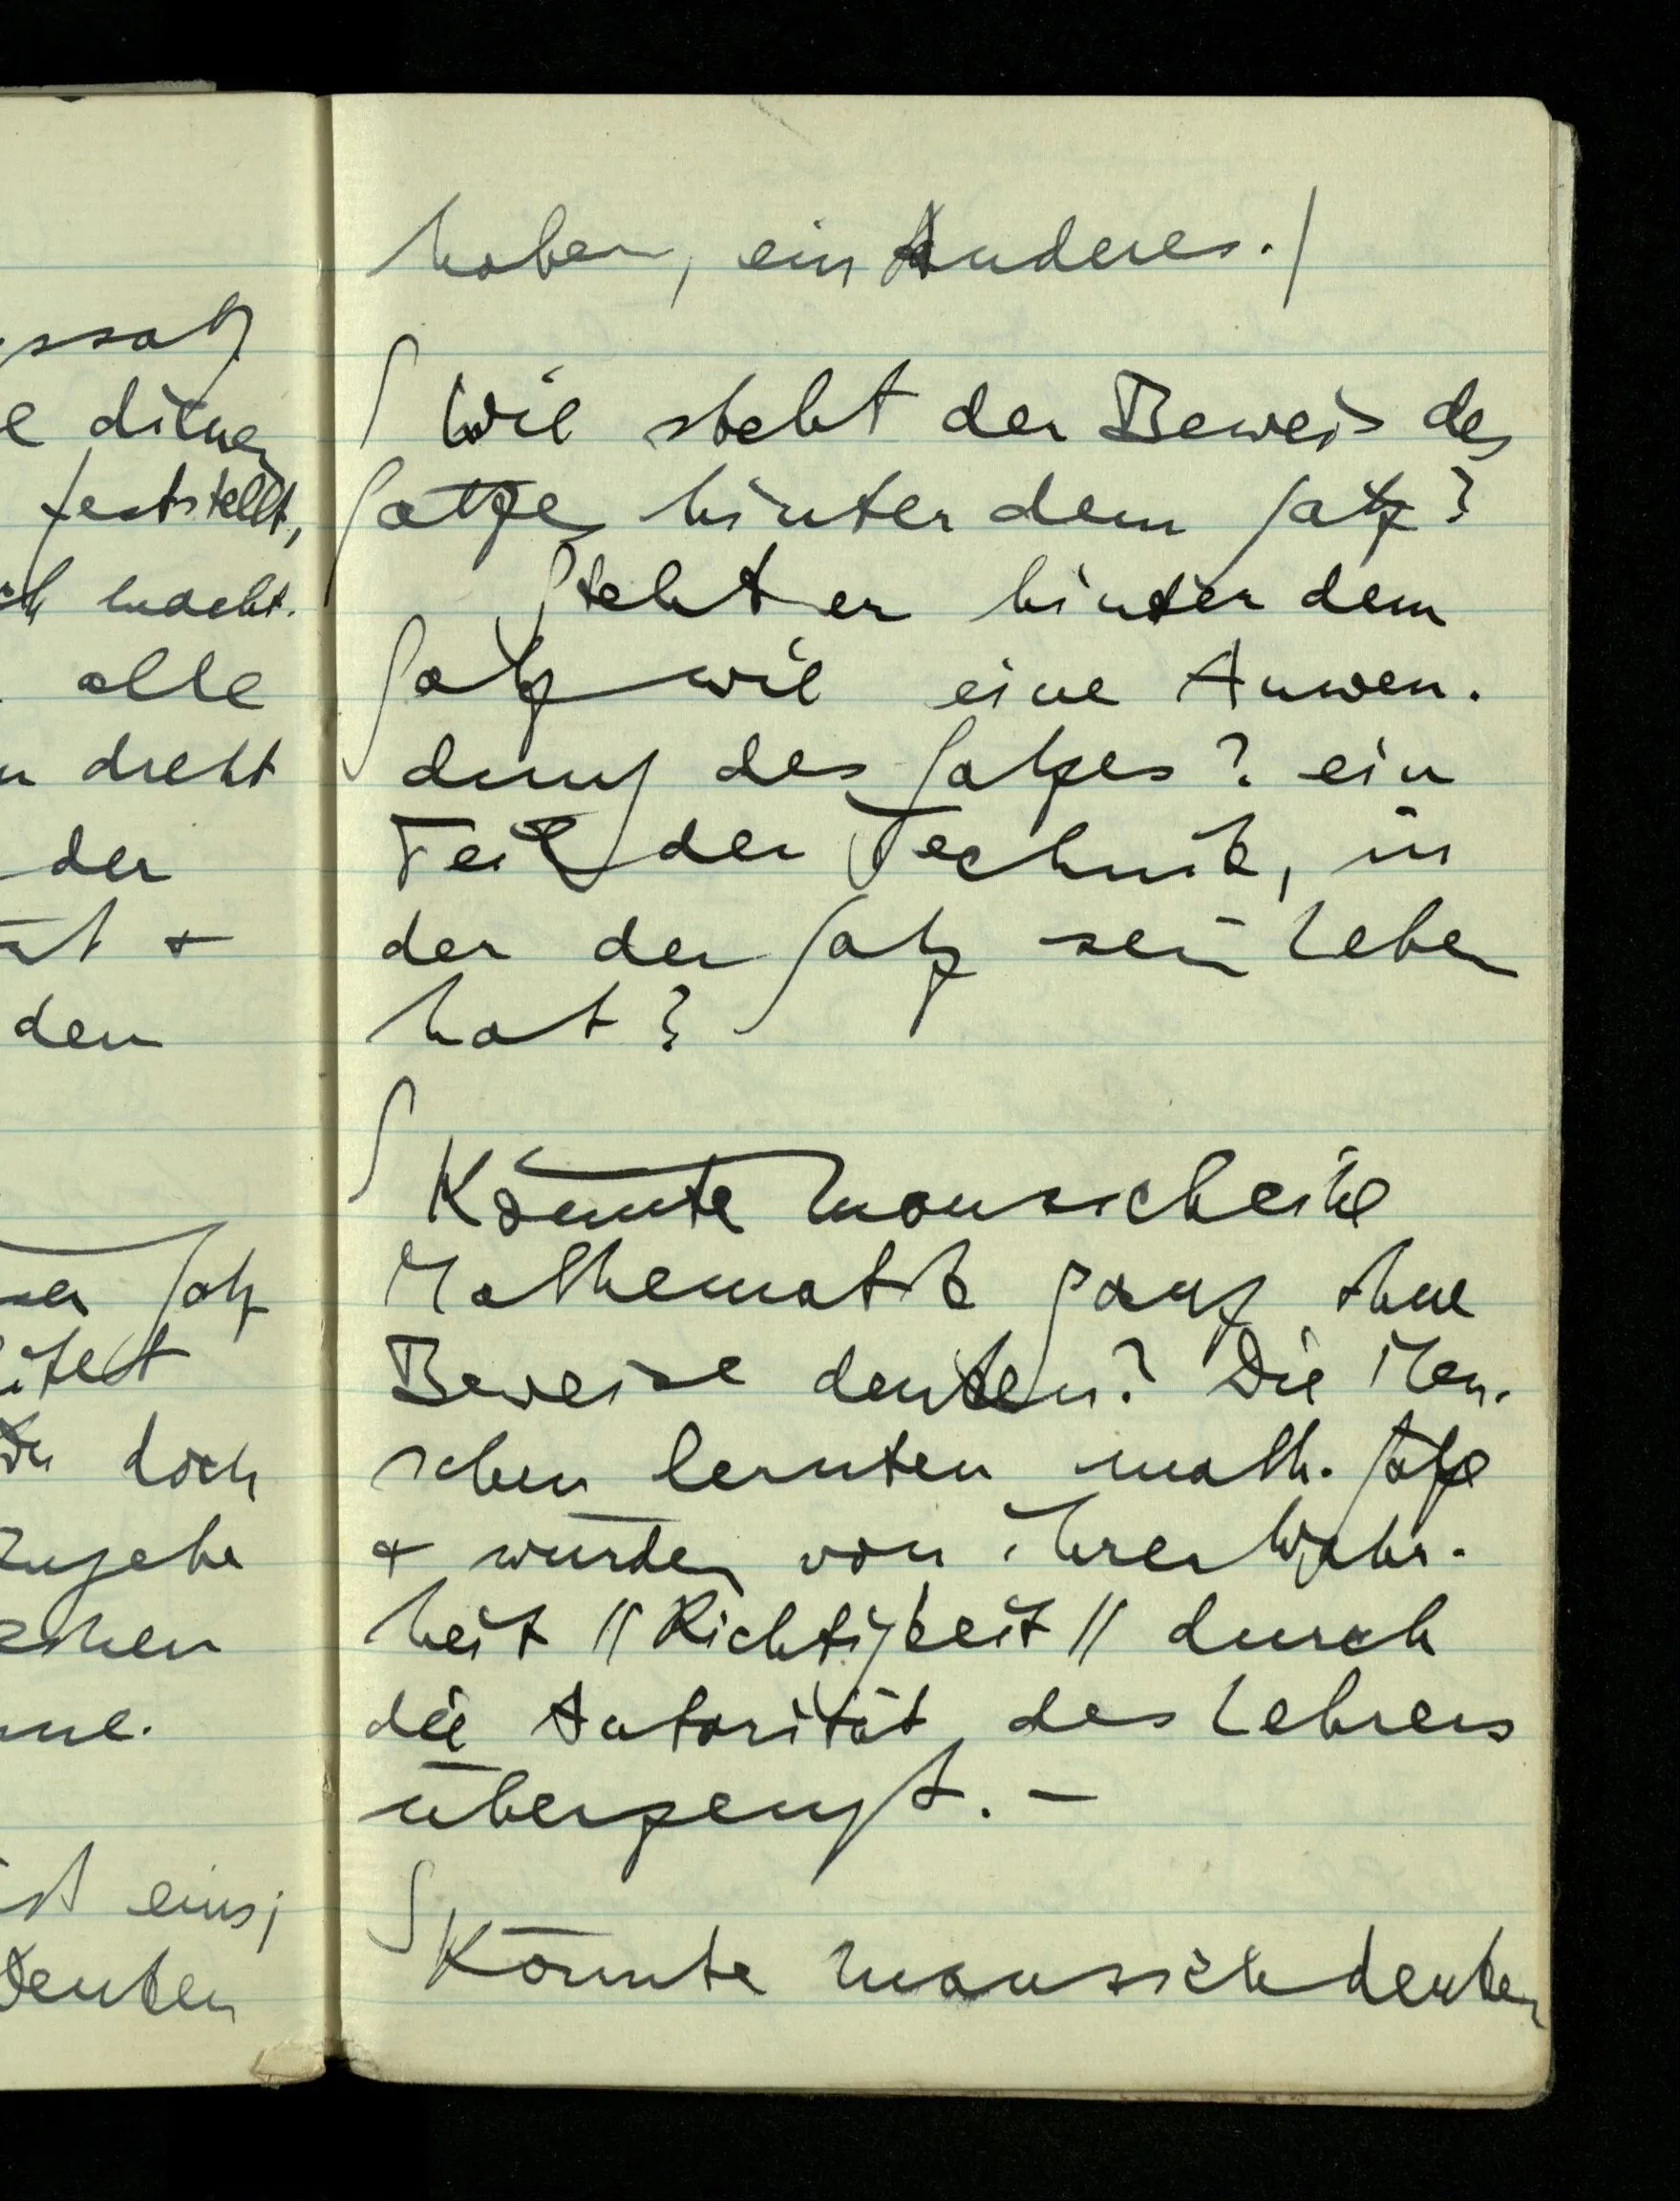 ssatz
feststellt,
ch macht.
alle
n dreht
der
den
Satz
doch
zugebe
st eins;
denken
haben, ein Anderes./
∫ Wie steht der Beweis des
Satzes hinter dem Satz?
Steht er hinter dem
Satz wie eine Anwen-
dung des Satzes? ein
Teil der Technik, in
der der Satz sein Leben
hat?
∫ Könnte man sich eine
Mathematik ganz ohne
Beweise denken? Die Men-
schen lernten math. Sätze
& würden von ihrer Wahr-
heit // Richtigkeit // durch
die Autorität des Lehrers
überzeugt. –
∫ Könnte man sich denken